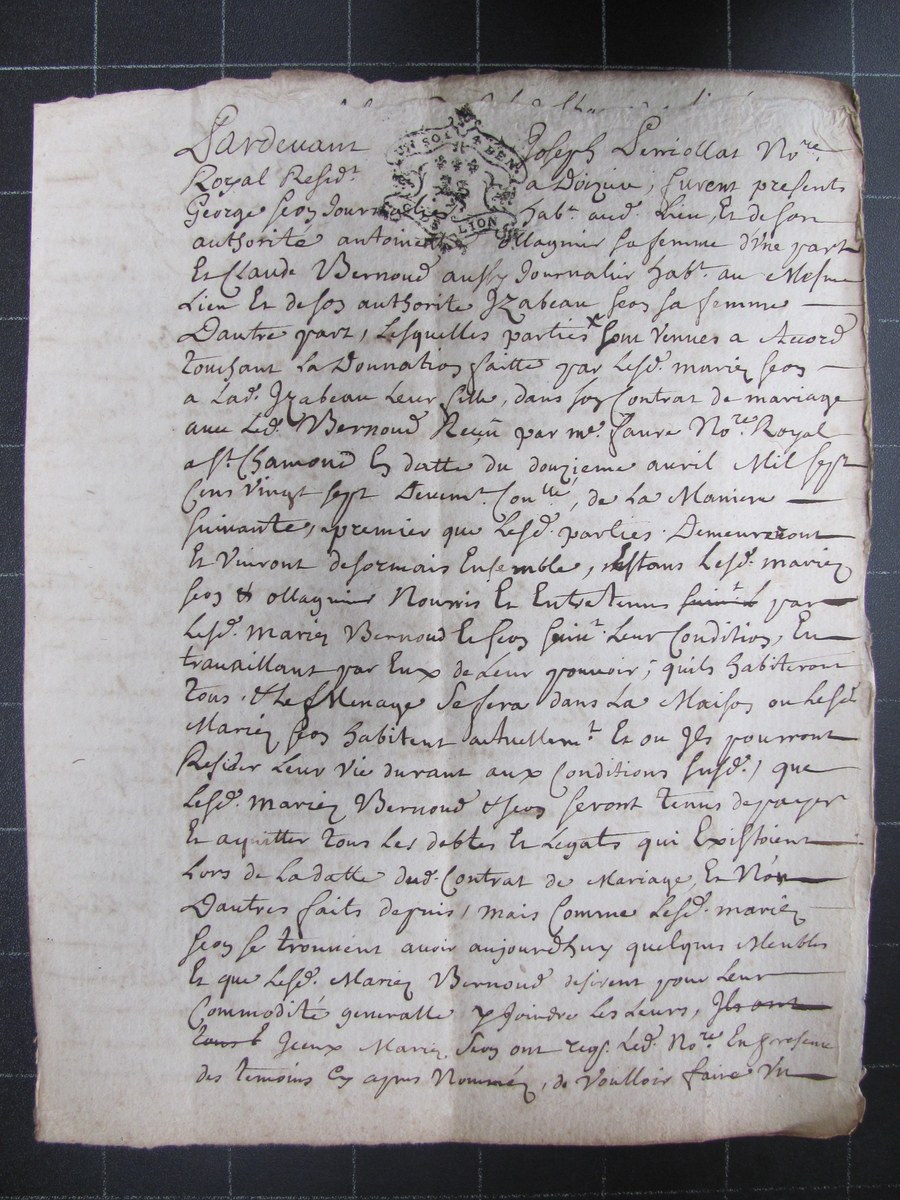 Pardevant Joseph Perriollat No.re
Royal Resid.t a Doizieu, furent presents
George seon Journallier hab.t aud. Lieu, Et de son
authorité antoinette ollagnier sa femme d'Une part
Et Claude Bernoud aussy Journalier hab.t au Mesme
Lieu Et de son authorite Jzabeau seon sa femme
Dautre part, Lesquelles parties sont venues a Accord
touchant La Donnation faitte par Lesd. mariez seon
a Lad. Jzabeau Leur fille, dans son Contrat de mariage
avec Led. Bernoud Reçeu par me. faure No.re Royal
a St. Chamond En datte du douzieme avril Mil sept
Cens Vingt sept Deuem.t Con.llé, de La Maniere
suivante, a premier que Lesd. parties Demeureront
Et Vivront desormais Ensemble, Estans Lesd. mariez
seon & ollagnier Nourris Et Entretenus suiv.t L par
Lesd. mariez Bernoud Et seon suiv.t Leur Condition, En
travaillant par Eux de Leur pouvoir; quils habiteront
tous, & Le Menage Se fera dans La Maison ou Lesd.
Mariez seon habitent actuellem.t Et ou Jls pourront
Resider Leur vie durant aux Conditions susd., que
Lesd. mariez Bernoud & seon seront tenus de payer
Et aquitter tous Les debtes Et Legats qui Existoient
Lors de La datte dud. Contrat de Mariage, Et Non
Dautres faits depuis, mais Comme Lesd. mariez
seon se trouvent avoir aujourdhuy quelques Meubles
Et que Lesd. Mariez Bernoud desirent pour Leur
Commodité generalle y Joindre Les Leurs, Jls ont
Jceux Mariez Seon ont req. Led. No.re En presence
des temoins Cy apres Nomméz, de Voulloir faire Un